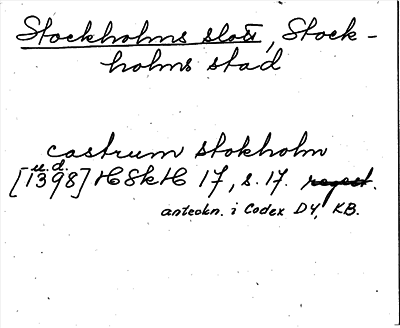 Stockholms slott, Stock-
holms stad
castrum stokholm
u.d.
[1398] HSkH 17, s. 17. regest.
anteckn. i Codex D4, KB.